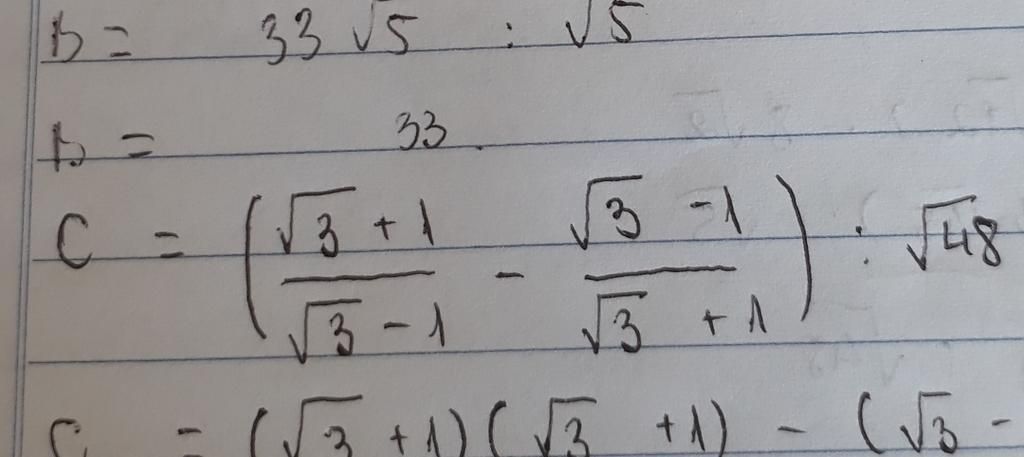 B = 33 √5 : √5
B = 33.
C = ( (√3 + 1)/(√3 - 1) - (√3 - 1)/(√3 + 1) ) : √48
C = (√3 + 1) (√3 + 1) - (√3 -